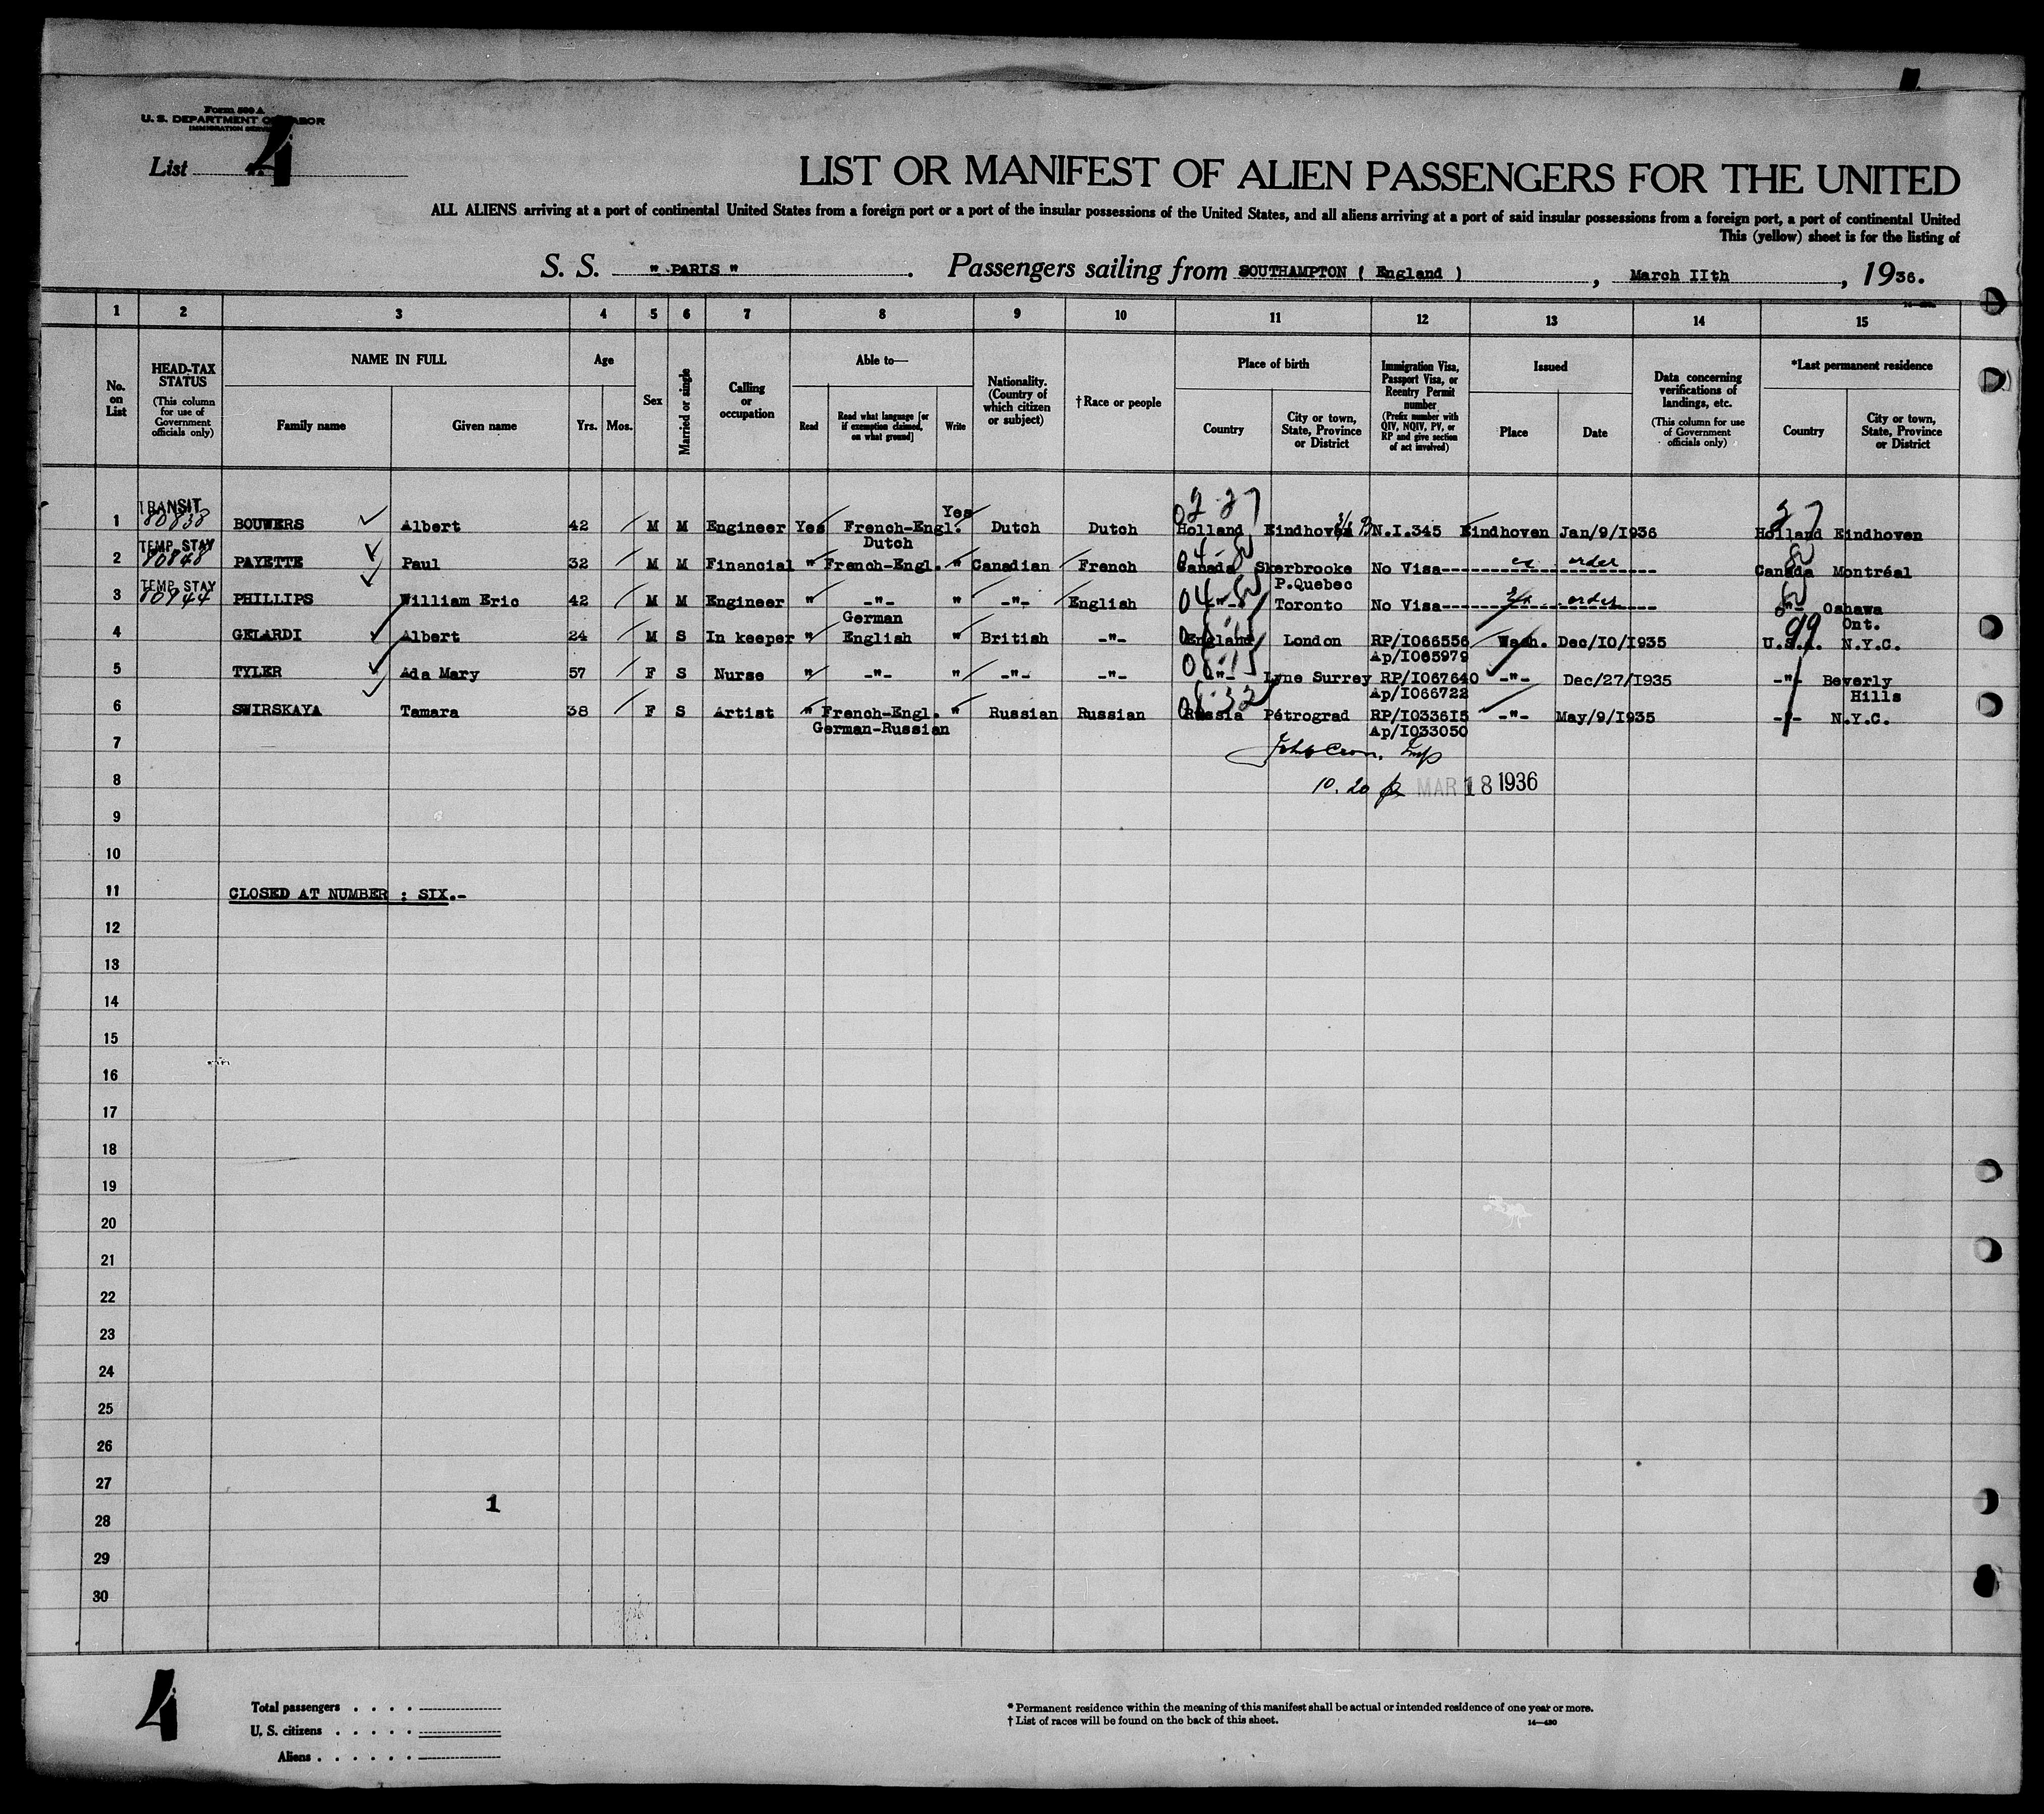 Form 500 A
U. S. DEPARTMENT OF LABOR
IMMIGRATION SERVICE
List 4
LIST OR MANIFEST OF ALIEN PASSENGERS FOR THE UNITED
ALL ALIENS arriving at a port of continental United States from a foreign port or a port of the insular possessions of the United States, and all aliens arriving at a port of said insular possessions from a foreign port, a port of continental United
This (yellow) sheet is for the listing of
S. S. " PARIS " . Passengers sailing from SOUTHAMPTON ( England ) , March IIth , 1936.
1 2 3 4 5 6 7 8 9 10 11 12 13 14 15
No. on List
HEAD-TAX STATUS (This column for use of Government officials only)
NAME IN FULL
Family name Given name
Age
Yrs. Mos.
Sex
Married or single
Calling or occupation
Able to—
Read Read what language [or if exemption claimed, on what ground] Write
Nationality. (Country of which citizen or subject)
†Race or people
Place of birth
Country City or town, State, Province or District
Immigration Visa, Passport Visa, or Reentry Permit number (Prefix number with QIV, NQIV, PV, or RP and give section of act involved)
Issued
Place Date
Data concerning verifications of landings, etc. (This column for use of Government officials only)
*Last permanent residence
Country City or town, State, Province or District
TRANSIT Yes 02-27 27
1 80838 BOUWERS Albert 42 M M Engineer Yes French-Engl. Dutch Dutch Holland Eindhoven N.I.345 Eindhoven Jan/9/1936 Holland Eindhoven
TEMP. STAY Dutch
2 80848 PAYETTE Paul 32 M M Financial " French-Engl. " Canadian French Canada Skerbrooke No Visa order Canada Montréal
TEMP. STAY P.Quebec
3 80944 PHILLIPS William Eric 42 M M Engineer " -"- " -"- English -"- Toronto No Visa order -"- Oshawa
German Ont.
4 GELARDI Albert 24 M S In keeper " English " British -"- England London RP/I066556 Wash. Dec/10/1935 U.S.A. N.Y.C.
99
Ap/I065979
5 TYLER Ada Mary 57 F S Nurse " -"- " -"- -"- -"- Lyne Surrey RP/I067640 -"- Dec/27/1935 -"- Beverly
Ap/I066722 Hills
6 SWIRSKAYA Tamara 38 F S Artist " French-Engl. " Russian Russian Russia Pétrograd RP/I033615 -"- May/9/1935 -"- N.Y.C.
German-Russian Ap/I033050
7
8 10.20 MAR 18 1936
9
10
11 CLOSED AT NUMBER : SIX.-
12
13
14
15
16
17
18
19
20
21
22
23
24
25
26
27
1
28
29
30
4
Total passengers . . . .
U. S. citizens . . . . .
Aliens . . . . . .
* Permanent residence within the meaning of this manifest shall be actual or intended residence of one year or more.
† List of races will be found on the back of this sheet.
14—430